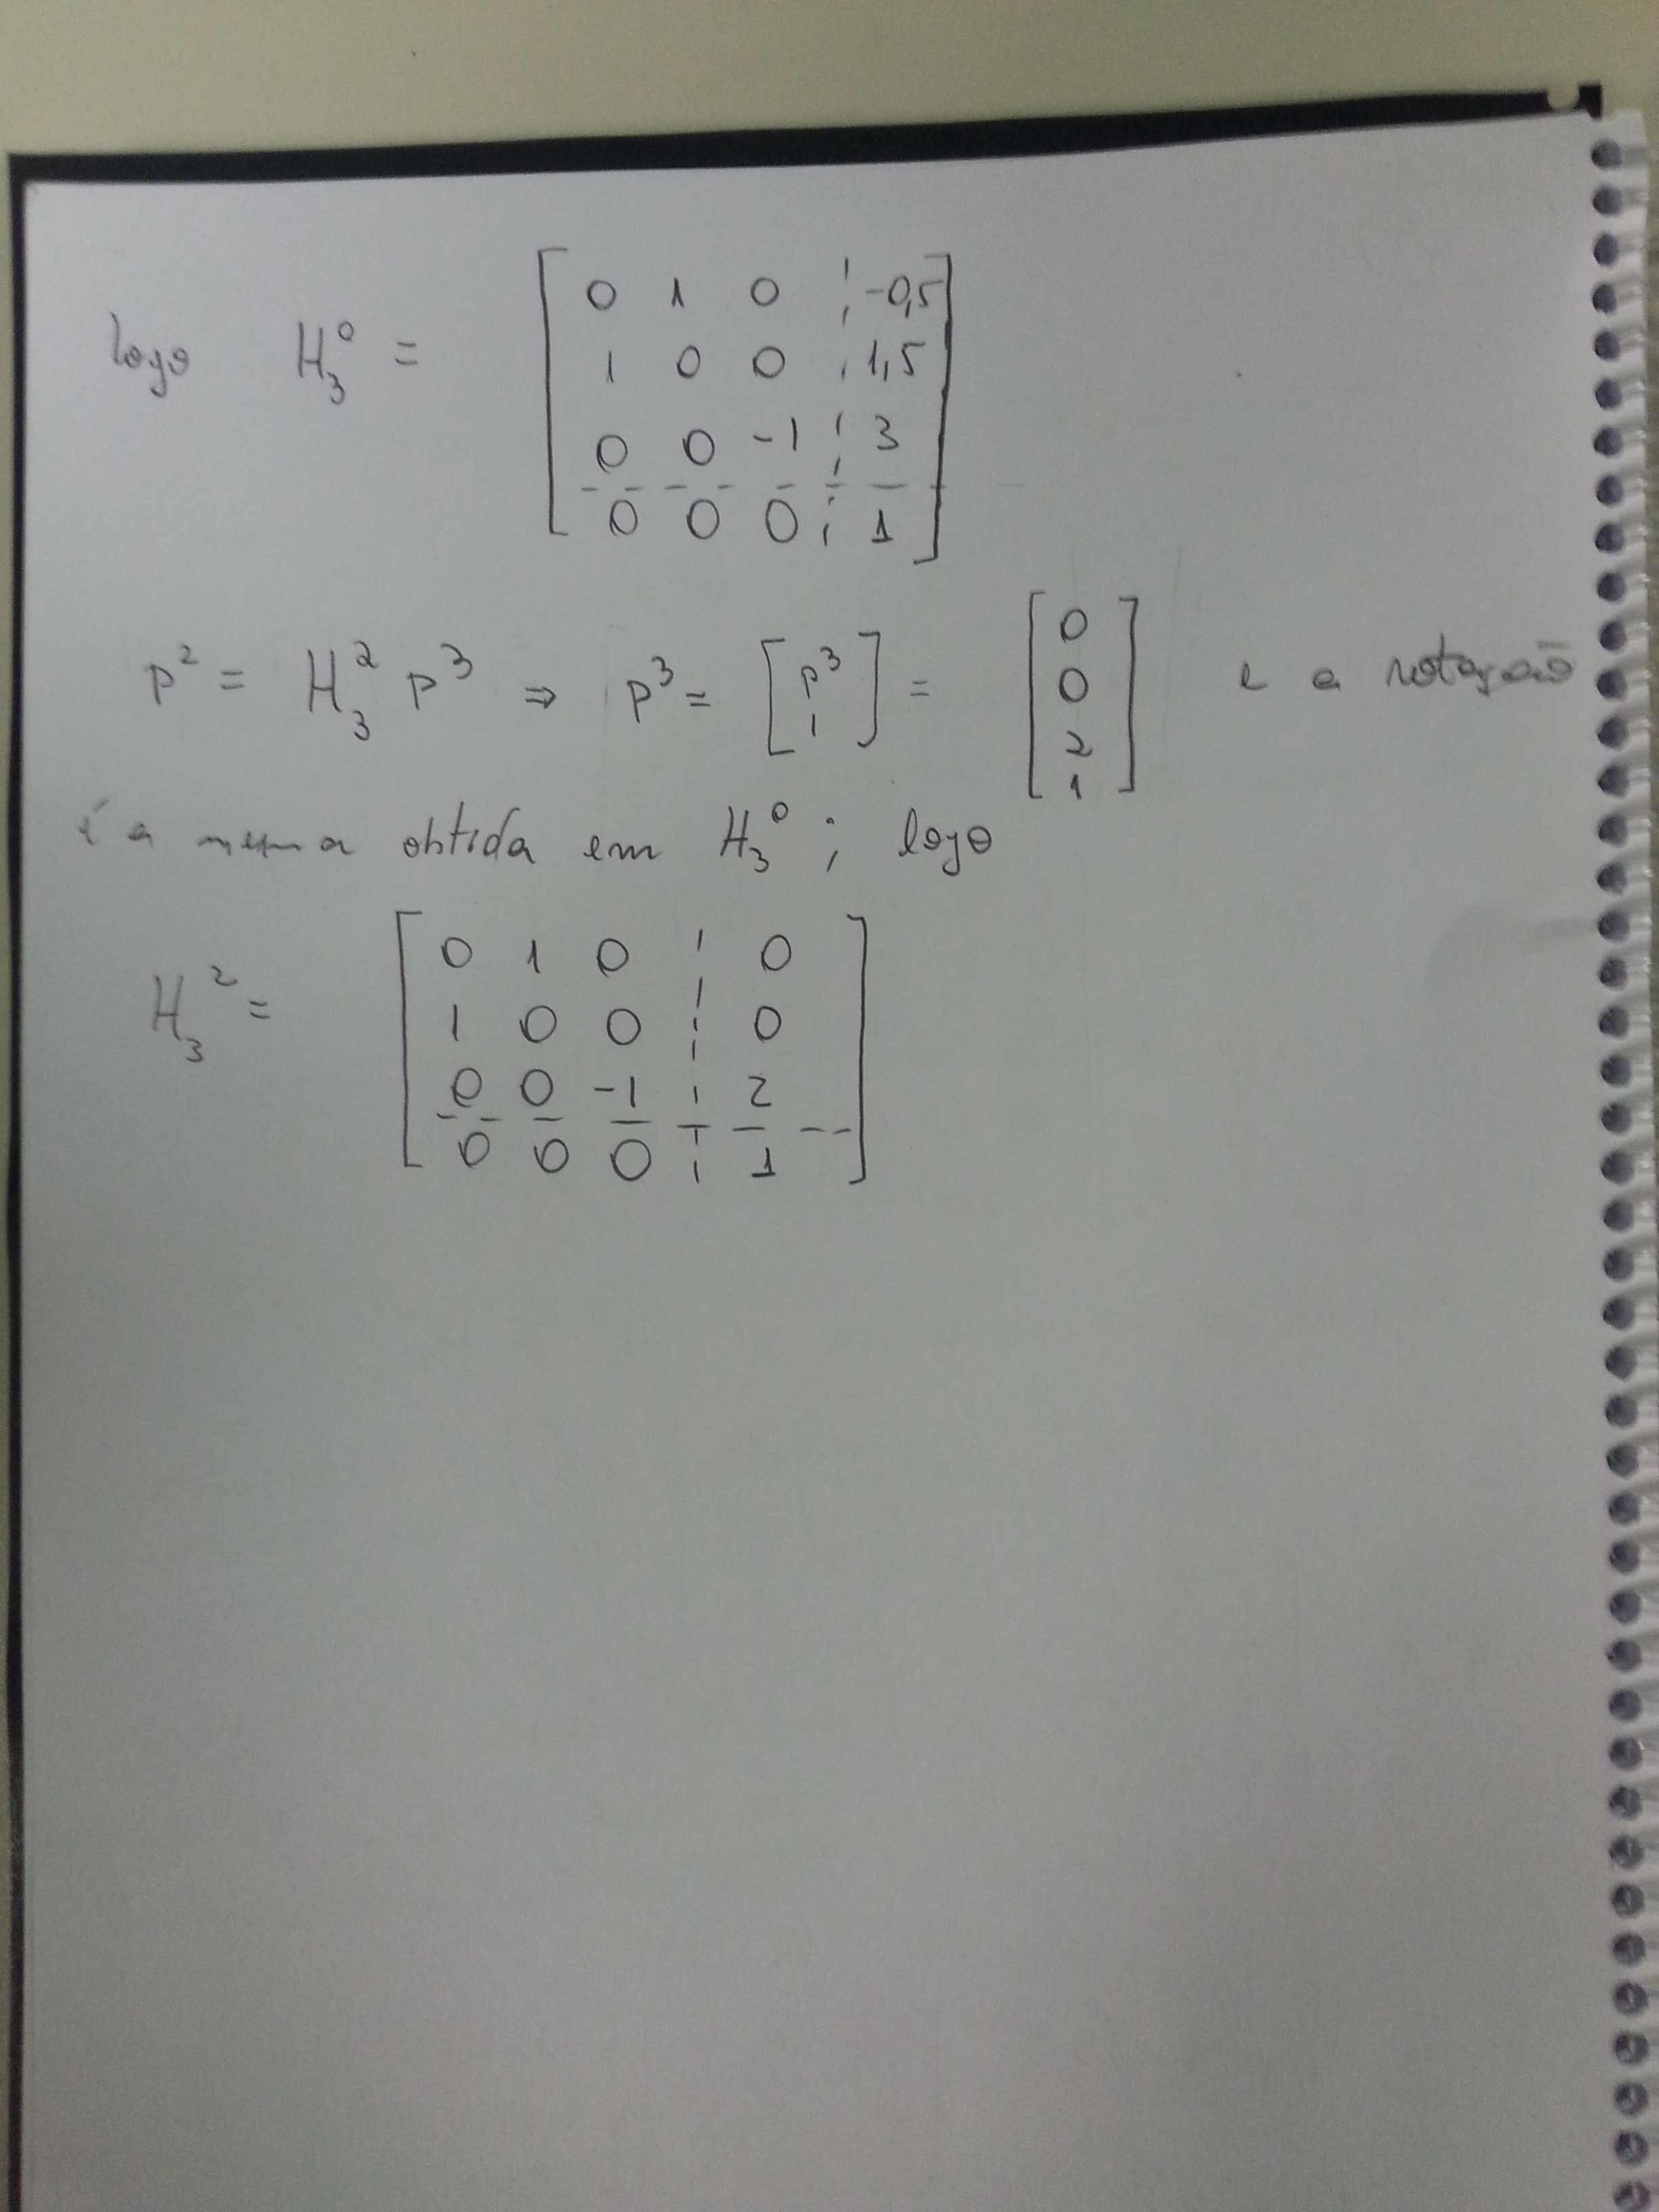 logo H₃⁰ =
[ 0 1 0 ¦ -0,5 ]
[ 1 0 0 ¦ 1,5 ]
[ 0 0 -1 ¦ 3 ]
[ 0 0 0 ¦ 1 ]
P² = H₃² P³ ⇒ P³ = [ P³ 1 ] = [ 0 0 2 1 ] e a rotação
é a mesma obtida em H₃⁰ ; logo
H₃² =
[ 0 1 0 ¦ 0 ]
[ 1 0 0 ¦ 0 ]
[ 0 0 -1 ¦ 2 ]
[ 0 0 0 ¦ 1 ]